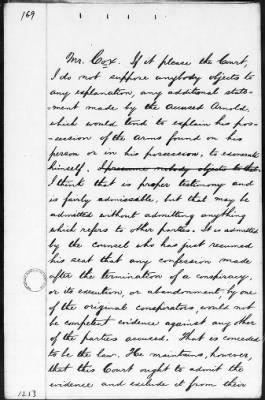 169
Mr. Cox. If it please the Court,
I do not suppose anybody objects to
any explanation, any additional state-
ment made by the accused Arnold
which would tend to explain his pos-
session of the arms found on his
person or in his possession, to exonerate
himself. I presume nobody objects to that.
I think that is proper testimony and
is fairly admissable, but that may be
admitted without admitting anything
which refers to other parties. It is admitted
by the counsel who has just resumed
his seat that any confession made
after the termination of a conspiracy,
or its execution, or abandonment, by one
of the original conspirators, would not
be competent evidence against any other
of the parties accused. That is conceded
to be the law. He maintains, however,
that this Court ought to admit the
evidence and exclude it from their
1213